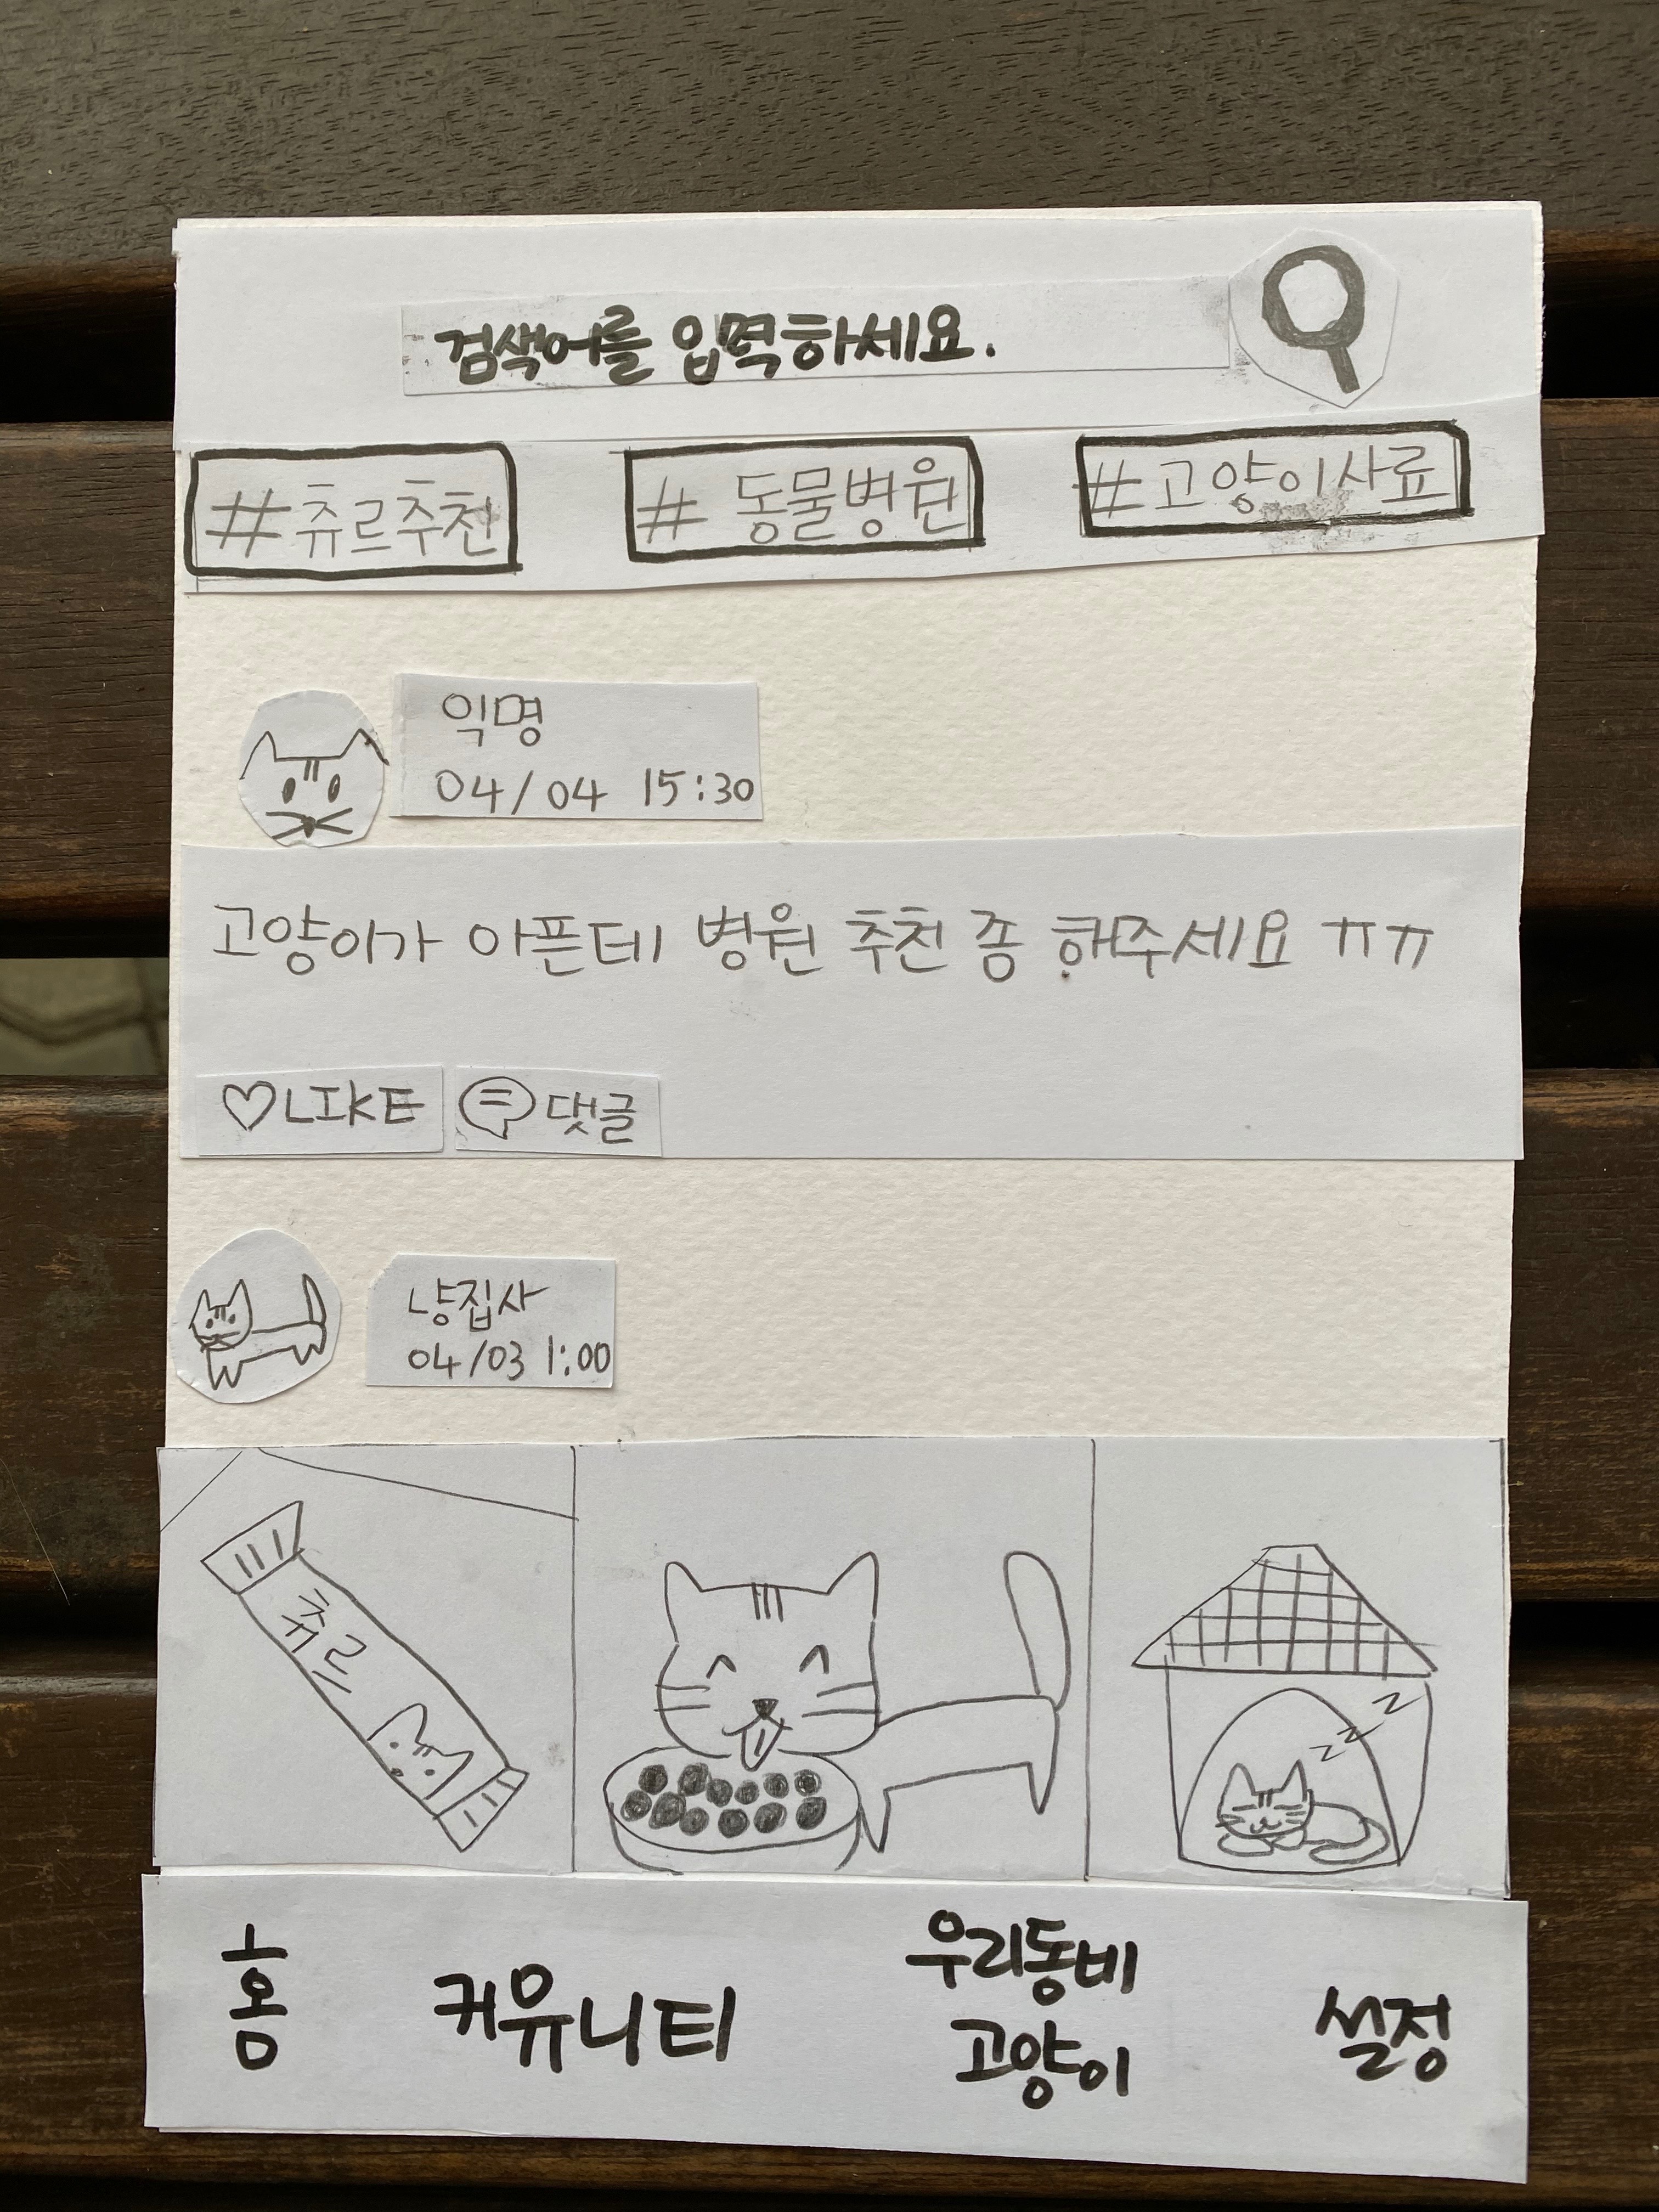 검색어를 입력하세요.
#츄르추천
# 동물병원
#고양이사료
익명
04/04 15:30
고양이가 아픈데 병원 추천 좀 해주세요 ㅠㅠ
LIKE
댓글
냥집사
04/03 1:00
츄르
z z z
홈
커뮤니티
우리동네
고양이
설정